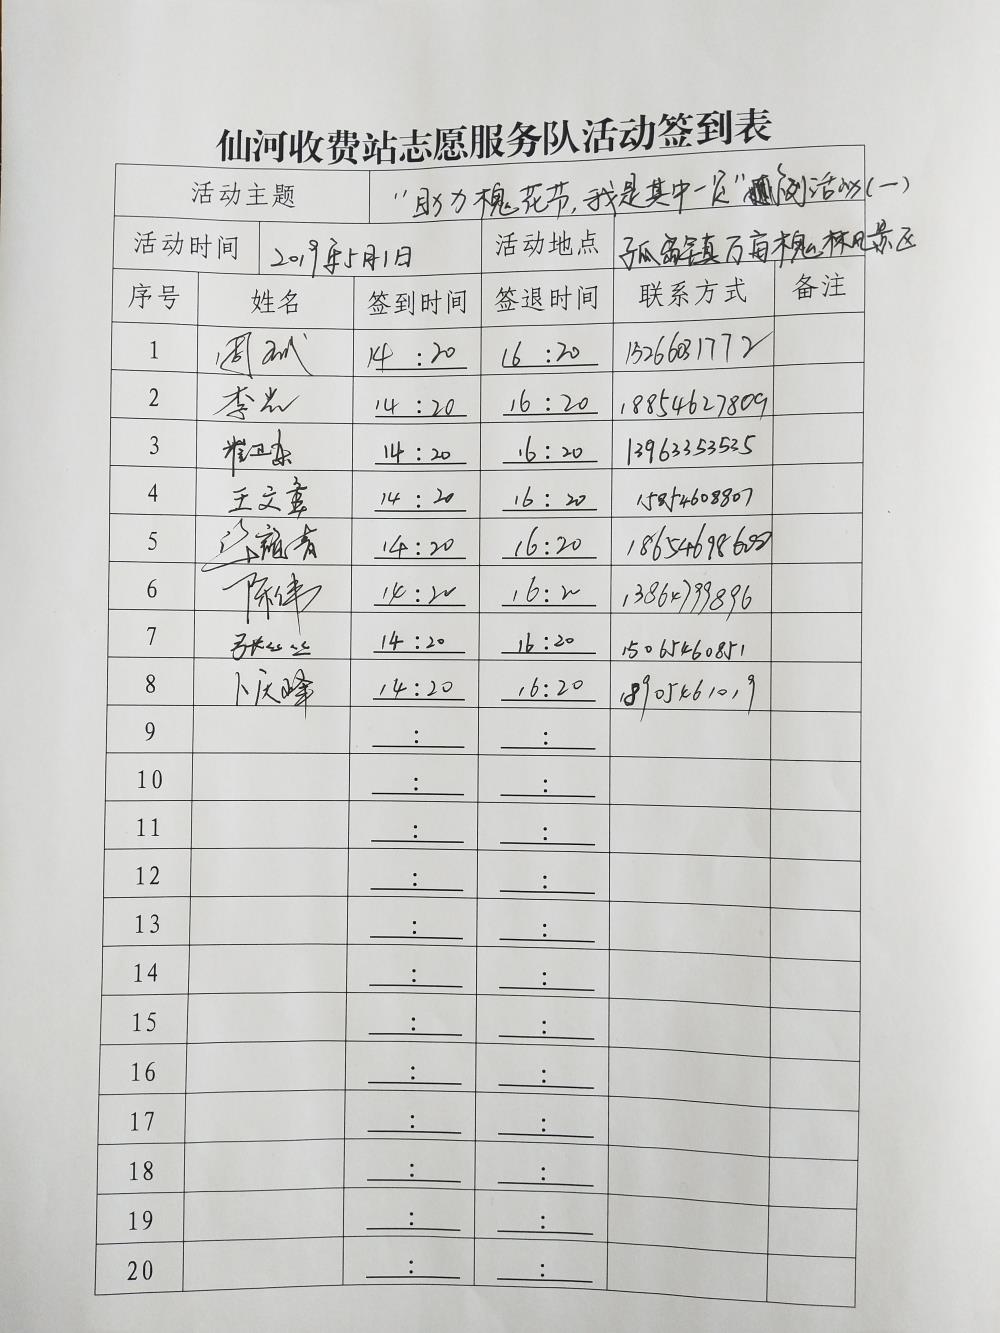 仙河收费站志愿服务队活动签到表
活动主题 “助力槐花节,我是其中一员”系列活动(一)
活动时间 2019年5月1日 活动地点 孤岛镇万亩槐林风景区
序号 姓名 签到时间 签退时间 联系方式 备注
1 周 14:20 16:20 15266031772
2 李 14:20 16:20 18854627809
3 崔卫东 14:20 16:20 13963353535
4 王文章 14:20 16:20 15854608807
5 14:20 16:20 18654698600
6 陈伟 14:20 16:20 13864799896
7 14:20 16:20 15065460851
8 卜庆峰 14:20 16:20 18905461019
9 : :
10 : :
11 : :
12 : :
13 : :
14 : :
15 : :
16 : :
17 : :
18 : :
19 : :
20 : :